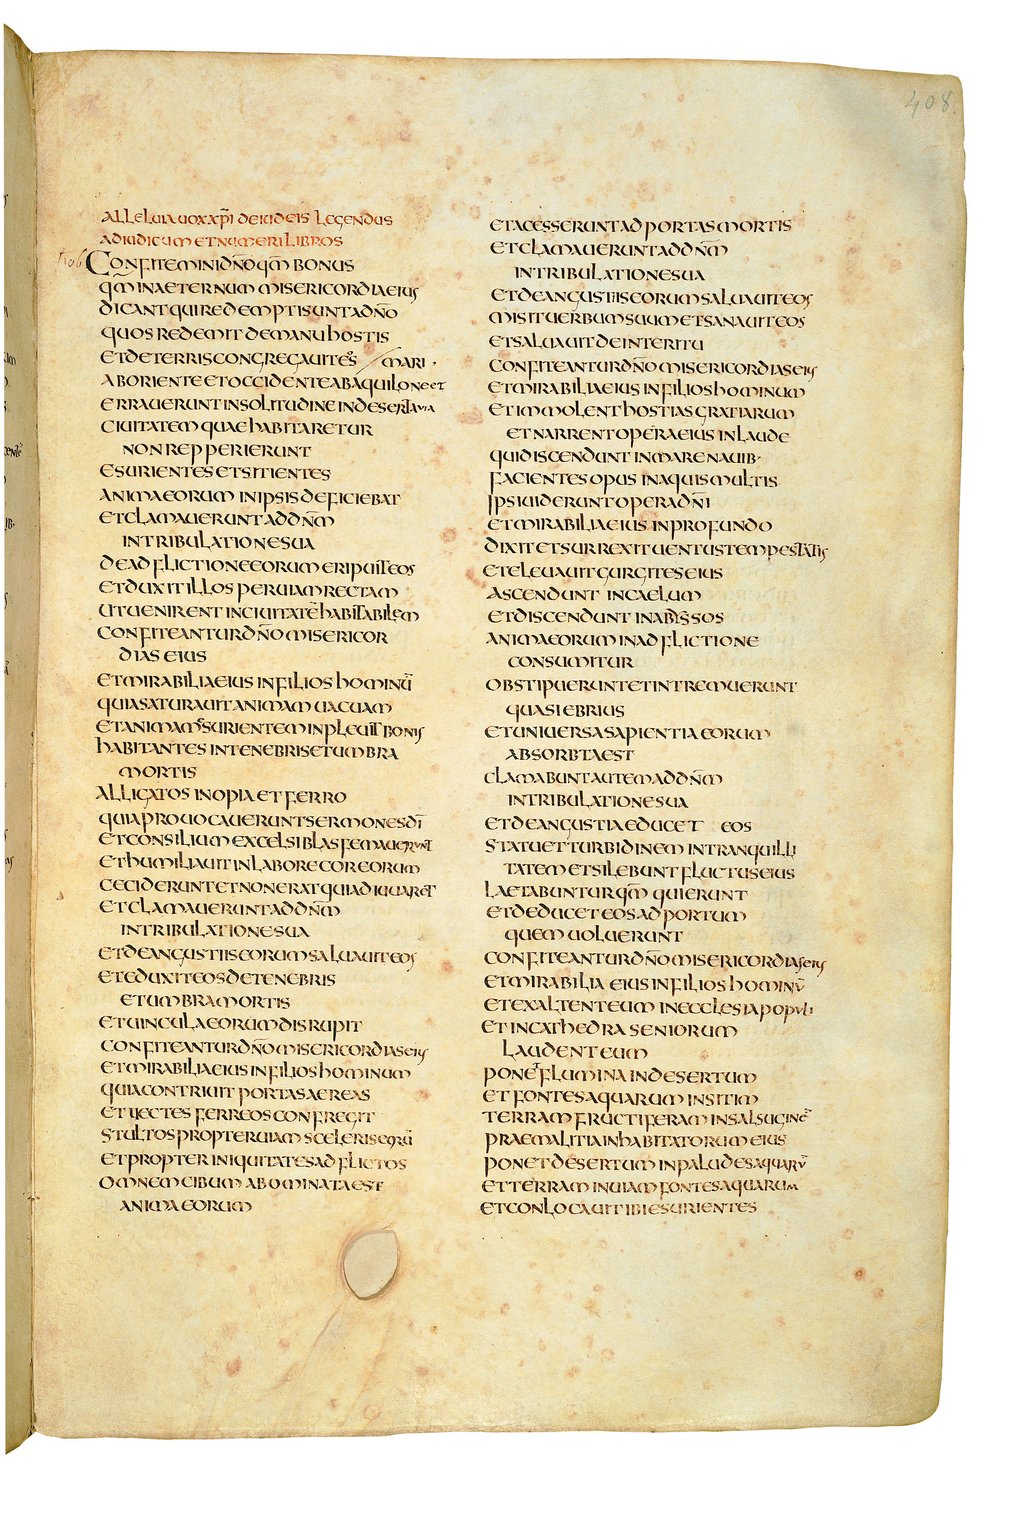 408.
ALLELUIA UOX XP̄I DE IUDEIS LEGENDUS
AD IUDICUM ET NUMERI LIBROS
106
CONFITEMINI DN̄O QM̄ BONUS
QM̄ IN AETERNUM MISERICORDIA EIUS
DICANT QUI REDEMPTI SUNT A DN̄O
QUOS REDEMIT DE MANU HOSTIS
ET DE TERRIS CONGREGAUIT EOS / MARI ·
AB ORIENTE ET OCCIDENTE AB AQUILONE ET
ERRAUERUNT IN SOLITUDINE IN DESERTA UIA
CIUITATEM QUAE HABITARETUR
NON REPPERIERUNT
ESURIENTES ET SITIENTES
ANIMA EORUM IN IPSIS DEFICIEBAT
ET CLAMAUERUNT AD DN̄M
IN TRIBULATIONE SUA
DE ADFLICTIONE EORUM ERIPUIT EOS
ET DUXIT ILLOS PER UIAM RECTAM
UT UENIRENT IN CIUITATĒ HABITABILEM
CONFITEANTUR DN̄O MISERICOR
DIAS EIUS
ET MIRABILIA EIUS IN FILIOS HOMINŪ
QUIA SATURAUIT ANIMAM UACUAM
ET ANIMAM ESURIENTEM INPLEUIT BONIS
HABITANTES IN TENEBRIS ET UMBRA
MORTIS
ALLIGATOS INOPIA ET FERRO
QUIA PROUOCAUERUNT SERMONES DĪ
ET CONSILIUM EXCELSI BLASFEMAUERUNT
ET HUMILIAUIT IN LABORE COR EORUM
CECIDERUNT ET NON ERAT QUI ADIUUARET
ET CLAMAUERUNT AD DN̄M
IN TRIBULATIONE SUA
ET DE ANGUSTIIS EORUM SALUAUIT EOS
ET EDUXIT EOS DE TENEBRIS
ET UMBRA MORTIS
ET UINCULA EORUM DISRUPIT
CONFITEANTUR DN̄O MISERICORDIAS EIUS
ET MIRABILIA EIUS IN FILIOS HOMINUM
QUIA CONTRIUIT PORTAS AEREAS
ET UECTES FERREOS CONFREGIT
STULTOS PROPTER UIAM SCELERIS EORŪ
ET PROPTER INIQUITATES ADFLICTOS
OMNEM CIBUM ABOMINATA EST
ANIMA EORUM
ET ACESSERUNT AD PORTAS MORTIS
ET CLAMAUERUNT AD DN̄M
IN TRIBULATIONE SUA
ET DE ANGUSTIIS EORUM SALUAUIT EOS
MISIT UERBUM SUUM ET SANAUIT EOS
ET SALUAUIT DE INTERITU
CONFITEANTUR DN̄O MISERICORDIAS EIUS
ET MIRABILIA EIUS IN FILIOS HOMINUM
ET IMMOLENT HOSTIAS GRATIARUM
ET NARRENT OPERA EIUS IN LAUDE
QUI DISCENDUNT IN MARE NAUIB·
FACIENTES OPUS IN AQUIS MULTIS
IPSI UIDERUNT OPERA DN̄I
ET MIRABILIA EIUS IN PROFUNDO
DIXIT ET SURREXIT UENTUS TEMPESTATIS
ET ELEUAUIT GURGITES EIUS
ASCENDUNT IN CAELUM
ET DISCENDUNT IN ABYSSOS
ANIMA EORUM IN ADFLICTIONE
CONSUMITUR
OBSTIPUERUNT ET INTREMUERUNT
QUASI EBRIUS
ET UNIUERSA SAPIENTIA EORUM
ABSORBTA EST
CLAMABUNT AUTEM AD DN̄M
IN TRIBULATIONE SUA
ET DE ANGUSTIA EDUCET EOS
STATUET TURBIDINEM IN TRANQUILLI
TATEM ET SILEBUNT FLUCTUS EIUS
LAETABUNTUR QM̄ QUIERUNT
ET DEDUCET EOS AD PORTUM
QUEM UOLUERUNT
CONFITEANTUR DN̄O MISERICORDIAS EIUS
ET MIRABILIA EIUS IN FILIOS HOMINŪ
ET EXALTENT EUM IN ECCLESIA POPULI
ET IN CATHEDRA SENIORUM
LAUDENT EUM
PONET FLUMINA IN DESERTUM
ET FONTES AQUARUM IN SITIM
TERRAM FRUCTIFERAM IN SALSUGINĒ
PRAE MALITIA INHABITATORUM EIUS
PONET DESERTUM IN PALUDES AQUARŪ
ET TERRAM INUIAM FONTES AQUARUM
ET CONLOCAUIT IBI ESURIENTES